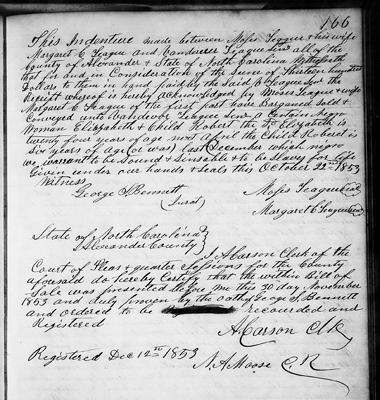 166
This Indenture made between Moses Teague & his wife
Margaret E Teague and Vandever Teague Senr all of the
County of Alexander & State of North Carolina Witnesseth
that for and in Consideration of the Sum of Thirteen hundred
Dollars to them in hand paid by the Said V Teague Senr the
Receipt whereof is hereby acknowledged I Moses Teague & wife
Margaret E Teague of the first part have Bargained Sold &
Conveyed unto Vandever Teague Senr a Certain negro
Woman Elizabeth & Child Robert the sd Elizabeth is
twenty four years of age next April the Child Robert is
Six years of Age (or was) last December which negro
we warrant to be Sound & Sensable & to be Slaves for life
Given under our hands & Seals this October 22nd 1853
Witness
George S Bennett Moses Teague Seal
(Jurat) Margaret E Teague Seal
State of North Carolina
Alexander County
I A Carson Clerk of the
Court of Pleas & quarter Sessions for the County
aforesaid do hereby Certify that the within Bill of
Sale was presented before me this 30 day November
1853 and duly proven by the oath of George S. Bennett
and ordered to be recourded and
Registered
A Carson Clk
Registered Dec 12th 1853
N. A. Moose C. R